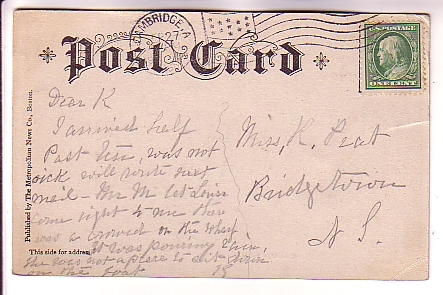 CAMBRIDGE A
27
U.S. POSTAGE
ONE CENT
* Post Card *
Dear K
I arrived half
Past ten, was not
sick will write next
mail - Mr M
come right to me there
was a crowd on the wharf
it was pouring rain,
there was not a place to sit down
on the boat
Miss K. Peat
Bridgetown
N S.
Published by The Metropolitan News Co., Boston.
This side for address